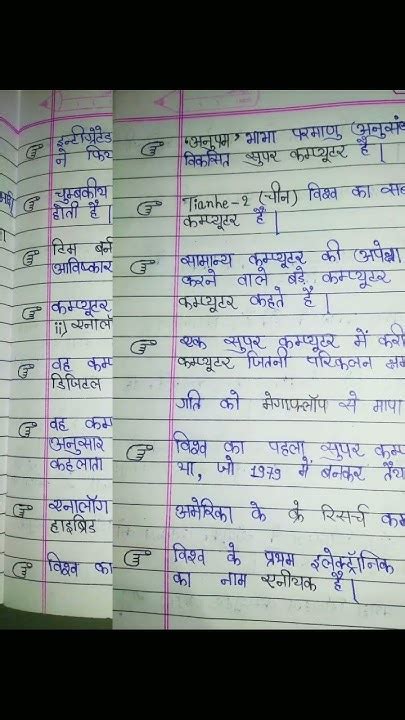 इन्टीग्रेटेड
ने फि
चुम्बकीय
होती है।
टिम बर्न
आविष्कार
कम्प्यूटर
ii) एनालॉ
वह कम
डिजिटल
वह कम्
अनुसार
कहलाता
एनालॉग
हाइब्रिड
विश्व का
'अनुपम' भाभा परमाणु (अनुसं
विकसित सुपर कम्प्यूटर है।
Tianhe-2 (चीन) विश्व का सब
कम्प्यूटर है।
सामान्य कम्प्यूटर की अपेक्षा
करने वाले बड़े कम्प्यूटर
कम्प्यूटर कहते हैं।
एक सुपर कम्प्यूटर में करी
कम्प्यूटर जितनी परिकलन क्षम
गति को मेगाफ्लॉप से मापा
विश्व का पहला सुपर कम्प
था, जो 1979 में बनकर तैया
अमेरिका के क्रे रिसर्च कम
विश्व के प्रथम इलेक्ट्रॉनिक
का नाम एनीयक है।